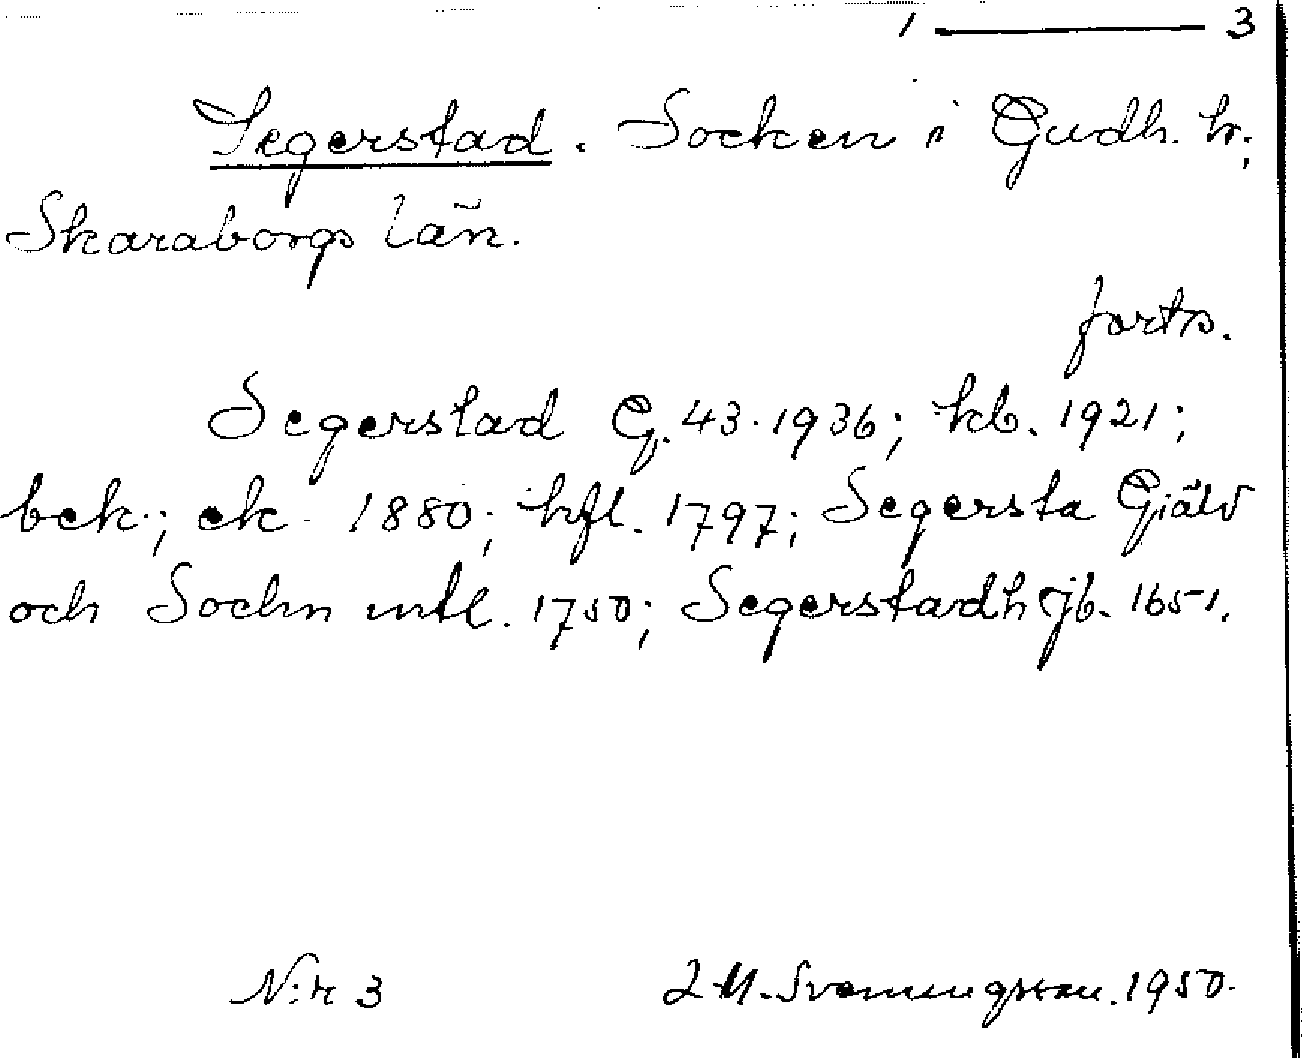 1 ——— 3
Segerstad. Socken i Gudh. hr;
Skaraborgs län.
forts.
Segerstad G. 43. 1936; kb. 1921;
bek.; ek. 1880; hfl. 1797; Segersta Giäld
och Sochn mtl. 1750; Segerstadh Jb. 1651.
N:r 3
1950.